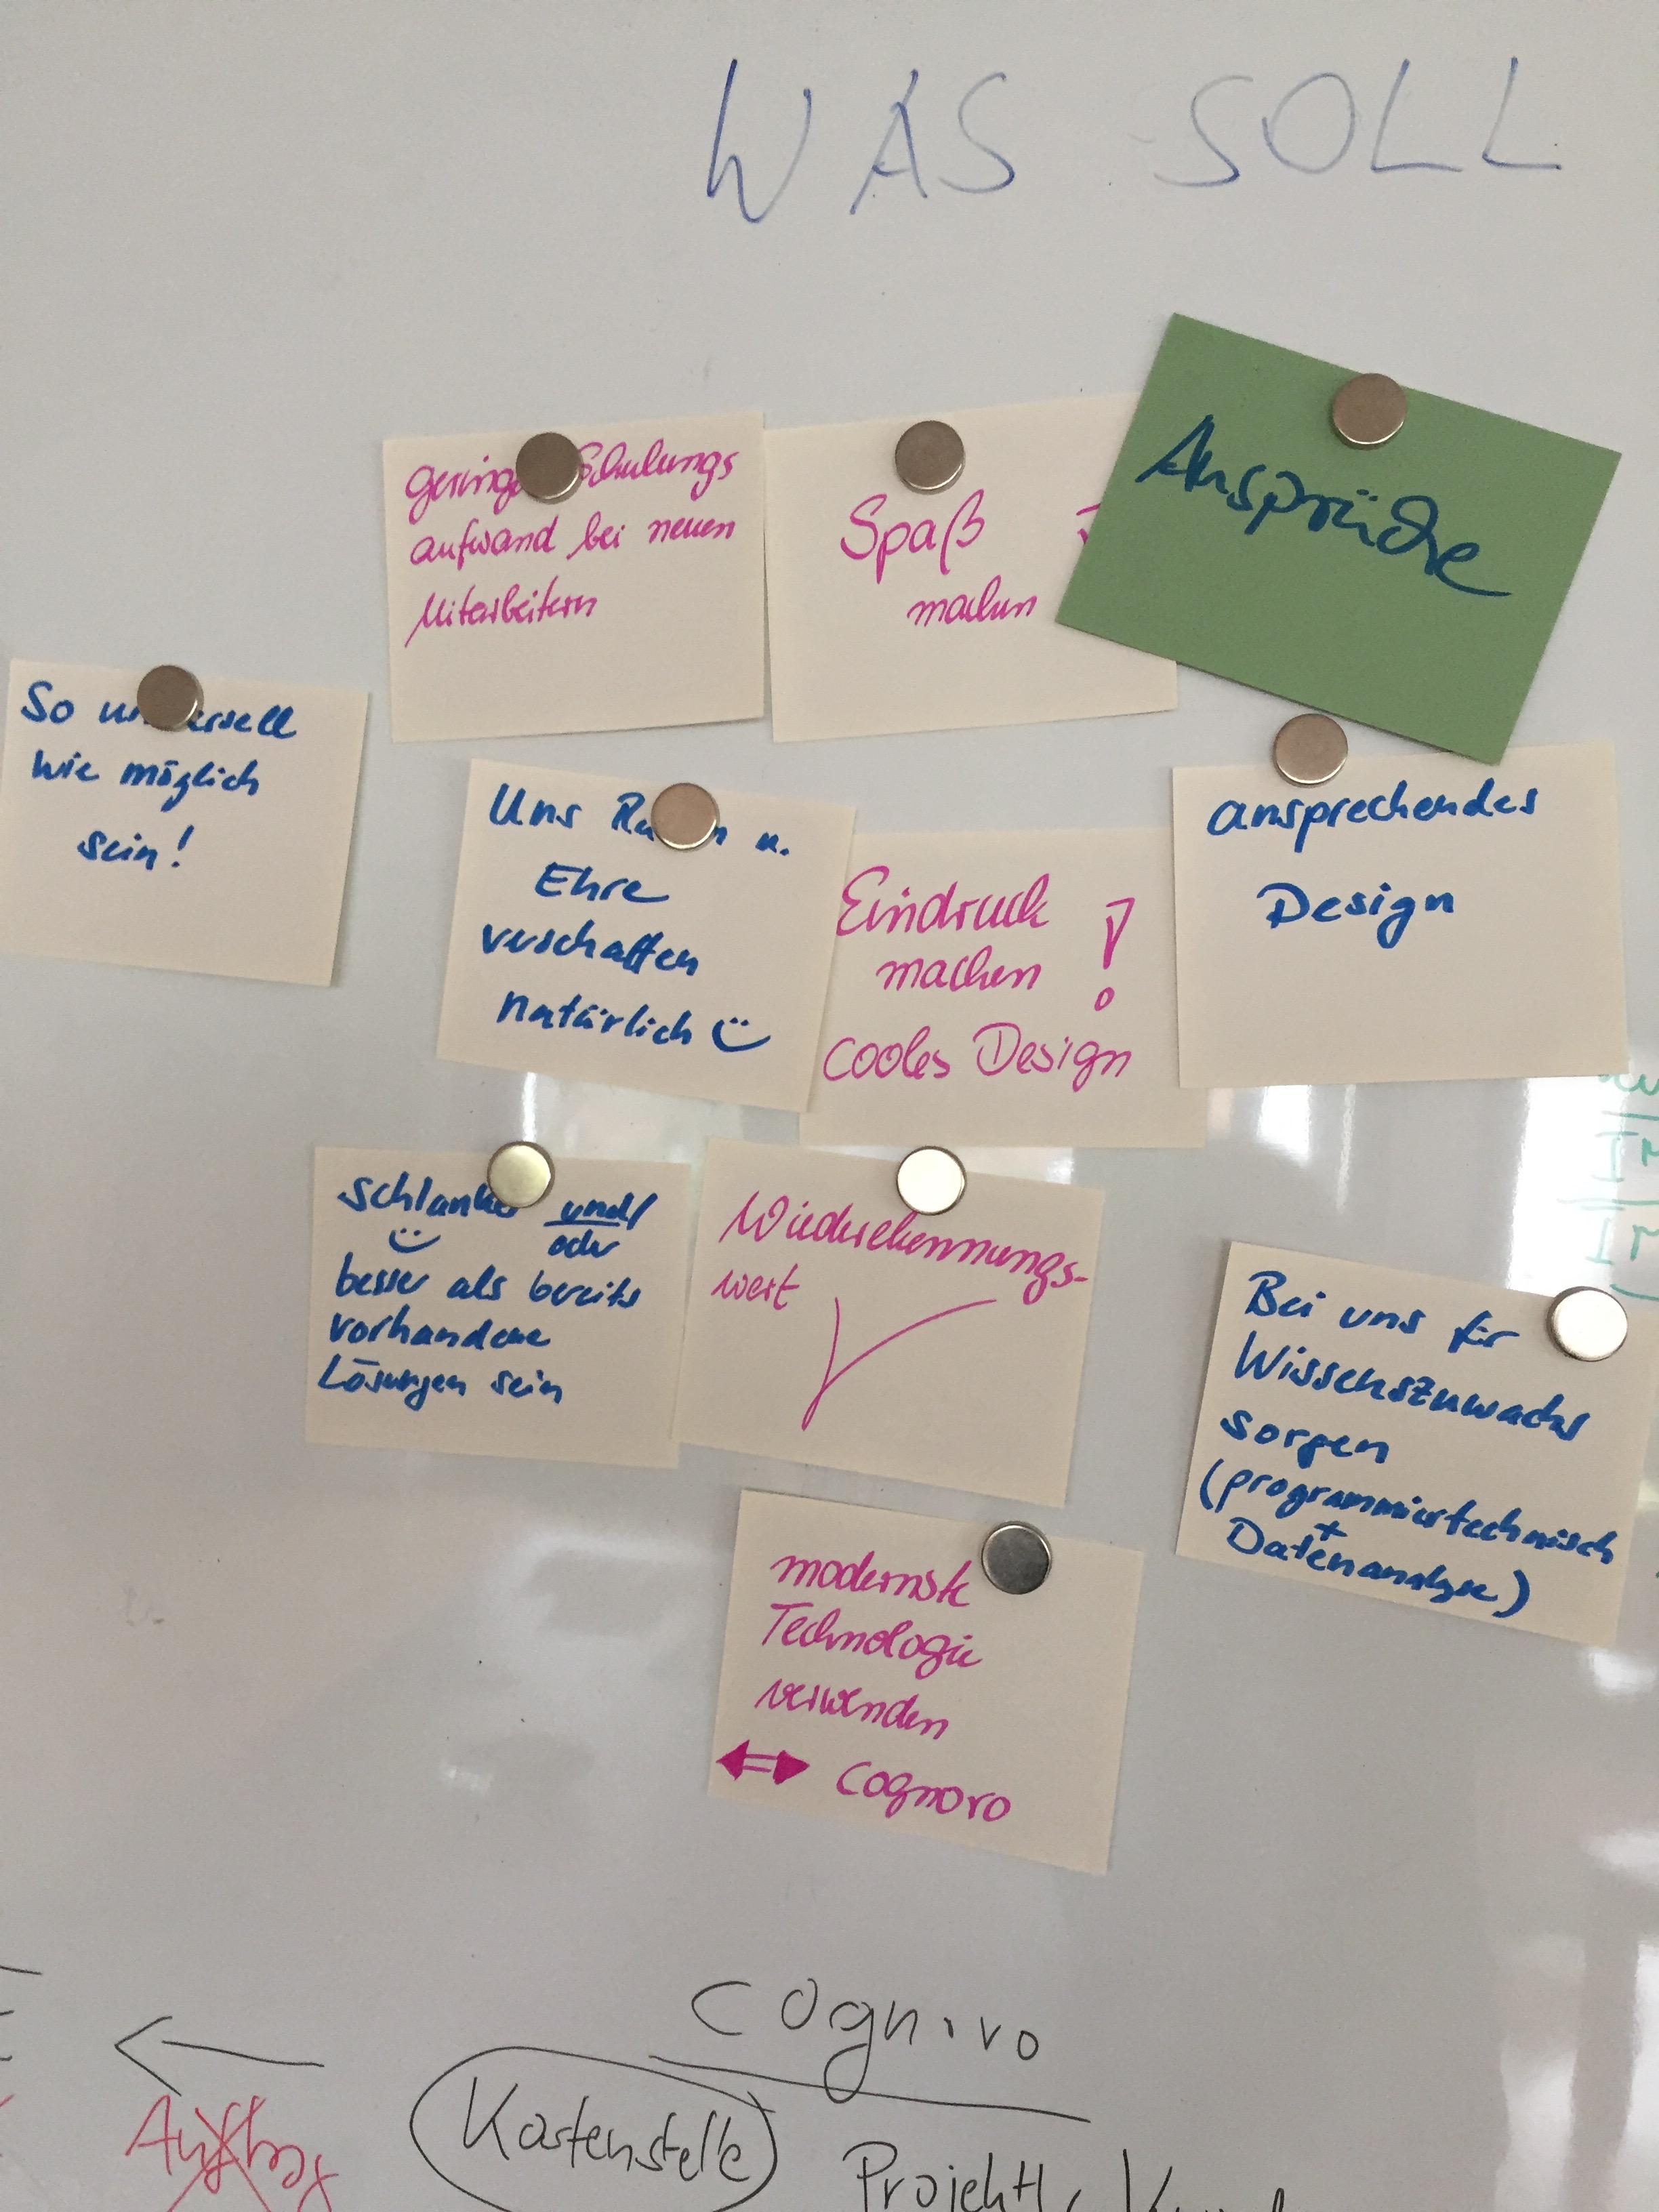 WAS SOLL
Ansprüche
geringe Schulungs
aufwand bei neuen
Mitarbeitern
Spaß
machen
So universell
wie möglich
sein!
Uns Ruhm u.
Ehre
verschaffen
natürlich ü
Eindruck
machen !
cooles Design
ansprechendes
Design
schlanker und/
oder
besser als bereits
vorhandene
Lösungen sein
Wiedererkennungs-
wert
Bei uns für
Wissenszuwachs
sorgen
(programmiertechnisch
+
Datenanalyse)
modernste
Technologie
verwenden
⇔ Cognoro
Cognovo
Kostenstelle